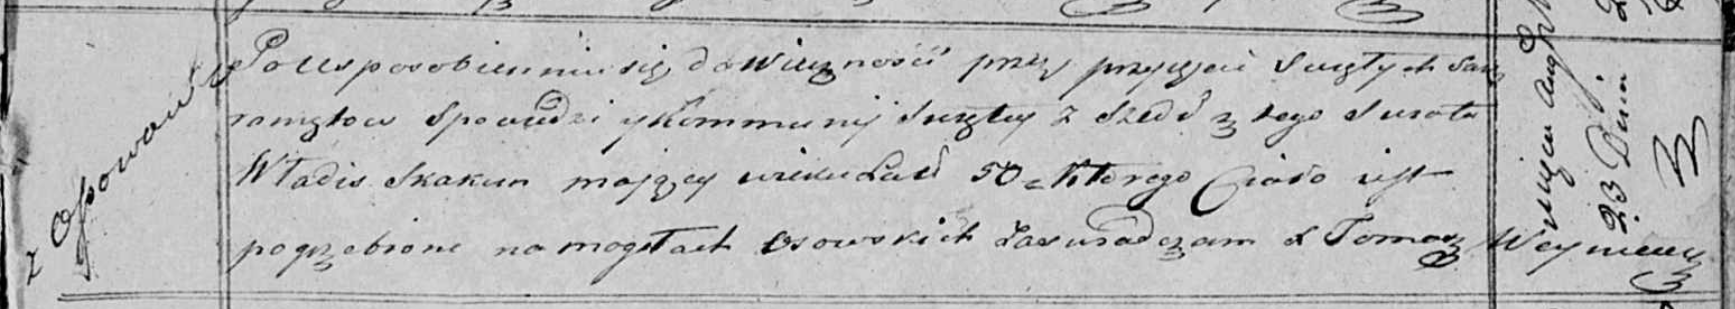 z Osowa
Po Usposobieniu się do Wieczności przez przyjęcie Swiętych Sak
ramętow Spowiedzi y Kommunij Swiętey z Szedł z tego Swiata
Władis Skakun mający wieku Lat 50 Ktorego Ciało jest
pogrzebione na mogłach Osowskich Zaswiadczam X Tomasz Weymer
23 Dnia